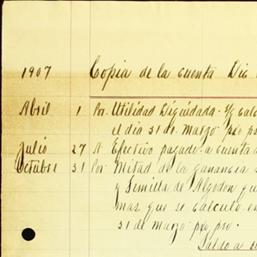 1907 Copia de la cuenta Dic.
Abril 1 Por Utilidad Liquidada
el dia 31 de Marzo ppo
Julio 27 A Efectivo pagado a cuenta d
Octubre 31 Por Mitad de la ganancia
y Semilla de Algodon que
mas que se calculo en
31 de Marzo ppo pro.
Saldo a